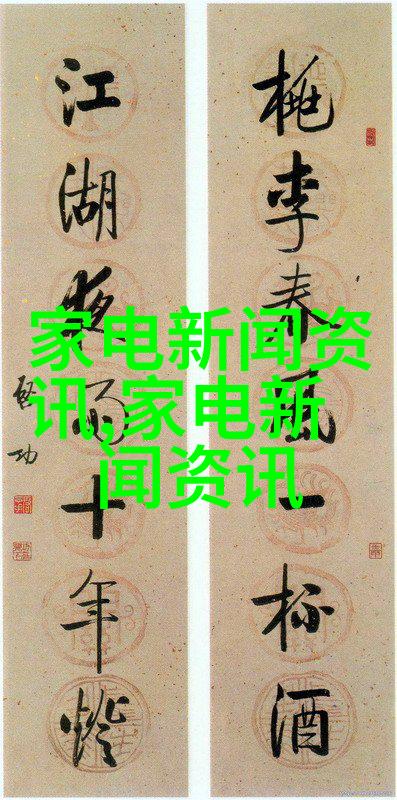 桃李春風一杯酒
江湖夜雨十年燈
啓功
家电新闻资
讯,家电新
闻资讯